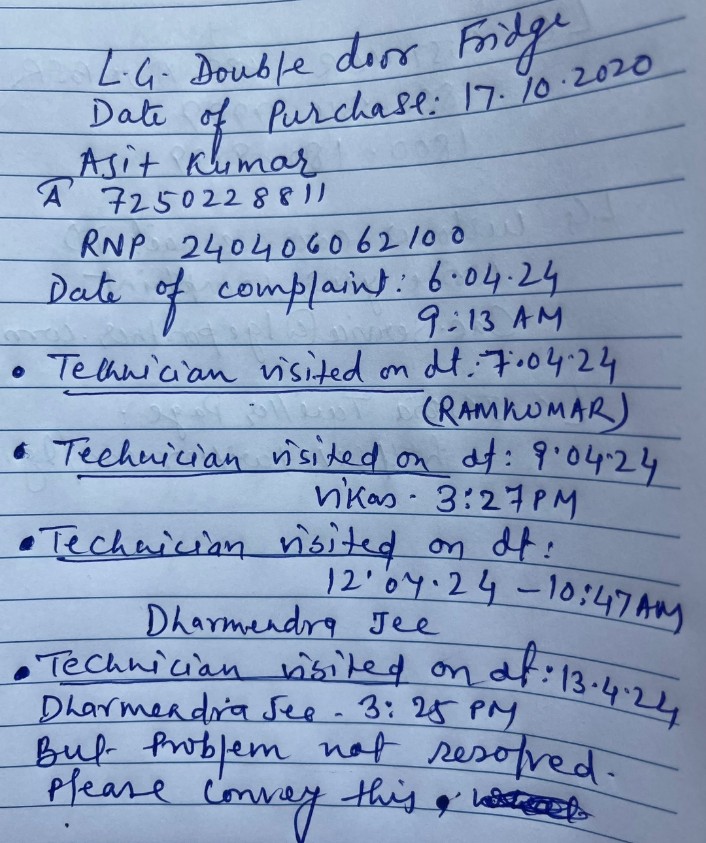 L.G. Double door Fridge
Date of Purchase: 17.10.2020
Ajit Kumar
A 7250228811
RNP 240406062100
Date of complaint: 6.04.24
9:13 AM
• Technician visited on dt.: 7.04.24
(RAMKUMAR)
• Technician visited on dt: 9.04.24
Vikas - 3:27 PM
• Technician visited on dt:
12.04.24 - 10:47 AM
Dharmendra Jee
• Technician visited on dt: 13.4.24
Dharmendra Jee - 3:25 PM
But Problem not resolved.
Please convey this